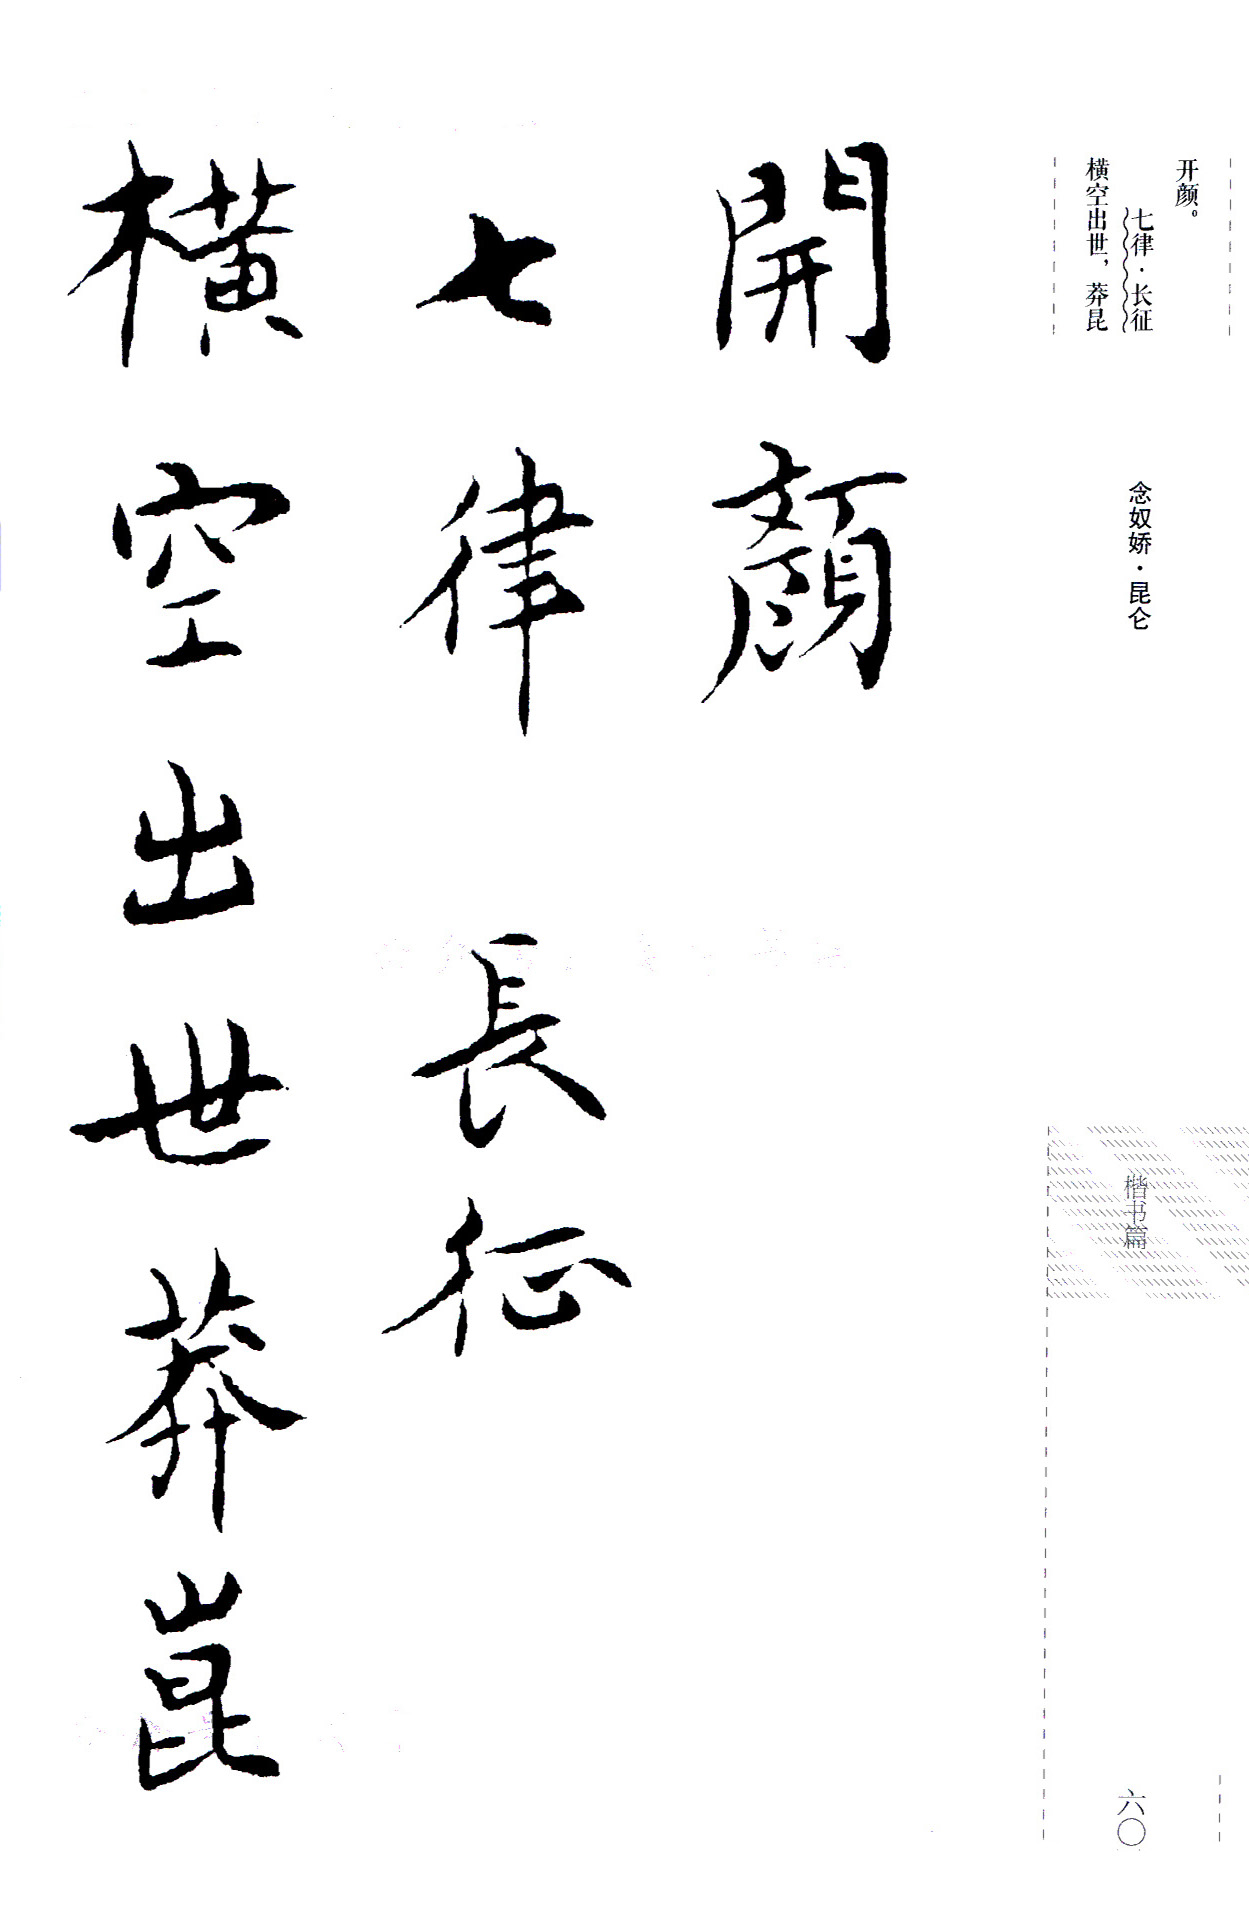 开颜。
七律·长征
横空出世，莽昆
念奴娇·昆仑
楷书篇
六〇
開顔
七律 長征
橫空出世莽崑